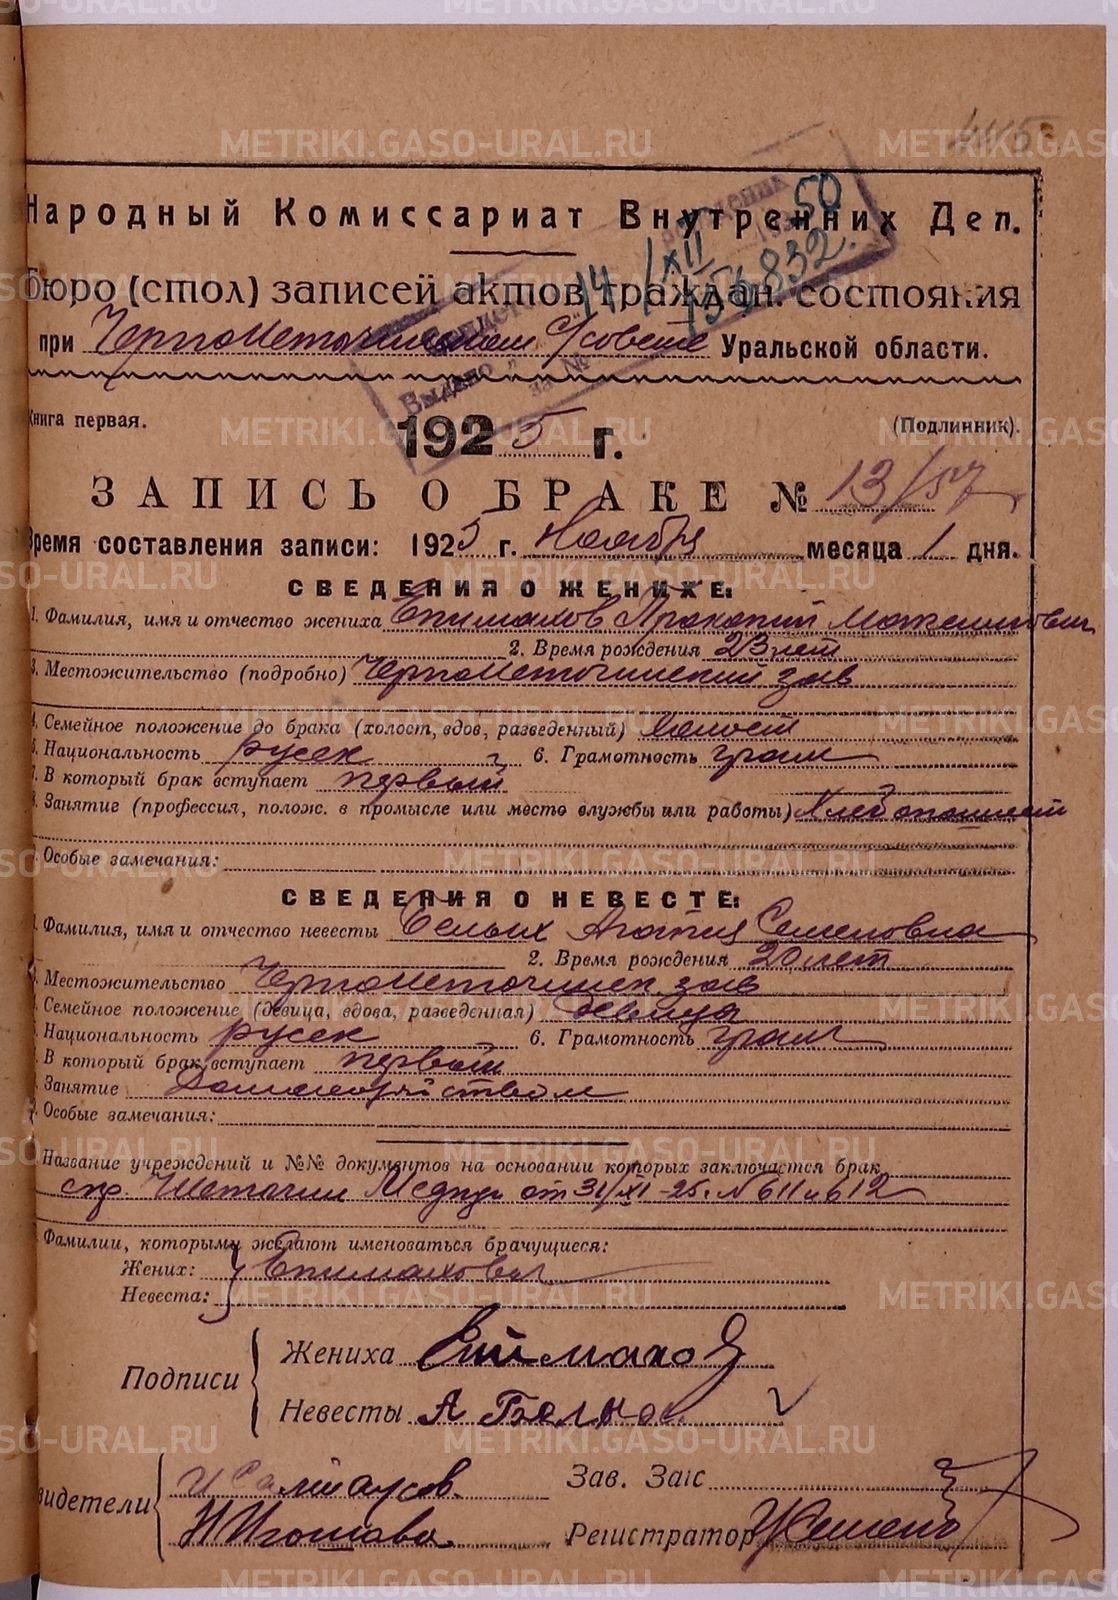 Народный Комиссариат Внутренних Дел.
Бюро (стол) записей актов граждан. состояния
при Черноисточинском С/совете Уральской области.
Книга первая.
(Подлинник).
1925 г.
ЗАПИСЬ О БРАКЕ № 13/57
Время составления записи: 1925 г. Ноября месяца 1 дня.
СВЕДЕНИЯ О ЖЕНИХЕ:
1. Фамилия, имя и отчество жениха Епимахов Прокопий Максимович
2. Время рождения 23 лет
3. Местожительство (подробно) Черноисточинский зав
4. Семейное положение до брака (холост, вдов, разведенный) Холост
5. Национальность русск 6. Грамотность грам
7. В который брак вступает первый
8. Занятие (профессия, полож. в промысле или место службы или работы) Хлебопашест
Особые замечания:
СВЕДЕНИЯ О НЕВЕСТЕ:
1. Фамилия, имя и отчество невесты Белых Агапия Семеновна
2. Время рождения 20 лет
Местожительство Черноисточинск зав
Семейное положение (девица, вдова, разведенная) девица
Национальность русск 6. Грамотность грам
В который брак вступает первый
Занятие Домохозяйством
Особые замечания:
Название учреждений и №№ документов на основании которых заключается брак
спр. от 31/XI-25. № 611 и 612
Фамилии, которыми желают именоваться брачущиеся:
Жених: Епимаховы
Невеста:
Подписи
Жениха Епимахов
Невесты А Белых
Свидетели
Зав. Загс
Регистратор
14/XII 50
156832.
Выдано
за №
METRIKI.GASO-URAL.RU